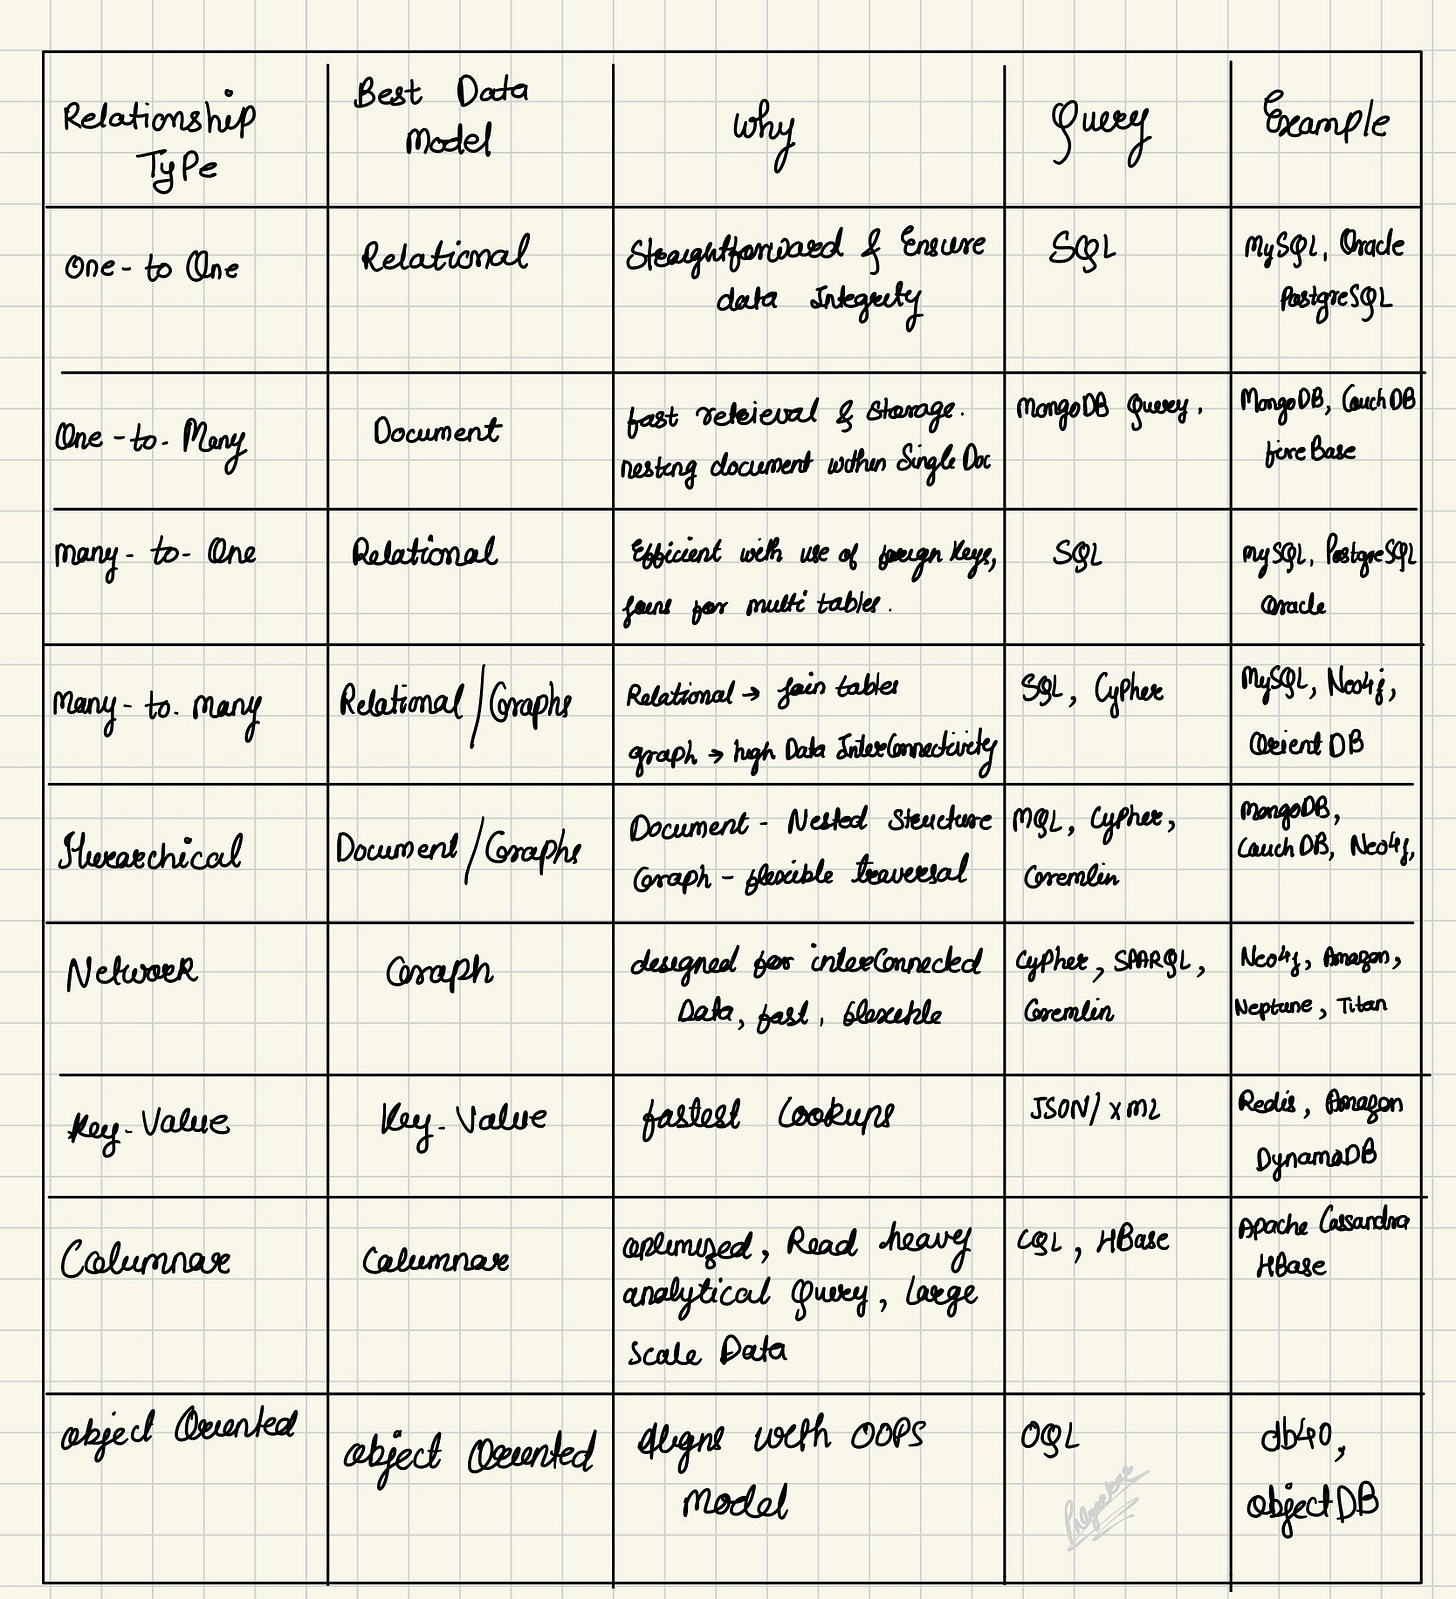 Relationship
Type
Best Data
Model
Why
Query
Example
One-to One
Relational
Straightforward & Ensure
data Integrity
SQL
MySQL, Oracle
PostgreSQL
One-to-Many
Document
fast retrieval & Storage.
nesting document within Single Doc
MongoDB Query.
MongoDB, CouchDB
fireBase
Many-to-One
Relational
Efficient with use of foreign Keys,
joins for multi tables.
SQL
MySQL, PostgreSQL
Oracle
Many-to-many
Relational/Graphs
Relational → join tables
graph → high Data InterConnectivity
SQL, Cypher
MySQL, Neo4j,
Orient DB
Hierarchical
Document/Graphs
Document - Nested Structure
Graph - flexible traversal
MQL, Cypher,
Gremlin
MongoDB,
CouchDB, Neo4j,
Network
Graph
designed for interConnected
Data, fast, flexible
Cypher, SPARQL,
Gremlin
Neo4j, Amazon,
Neptune, Titan
Key-Value
Key-Value
fastest Lookups
JSON/XML
Redis, Amazon
DynamoDB
Columnar
Columnar
optimized, Read heavy
analytical Query, Large
Scale Data
CQL, HBase
Apache Cassandra
HBase
object Oriented
object Oriented
Aligns with OOPS
Model
OQL
db4o,
objectDB